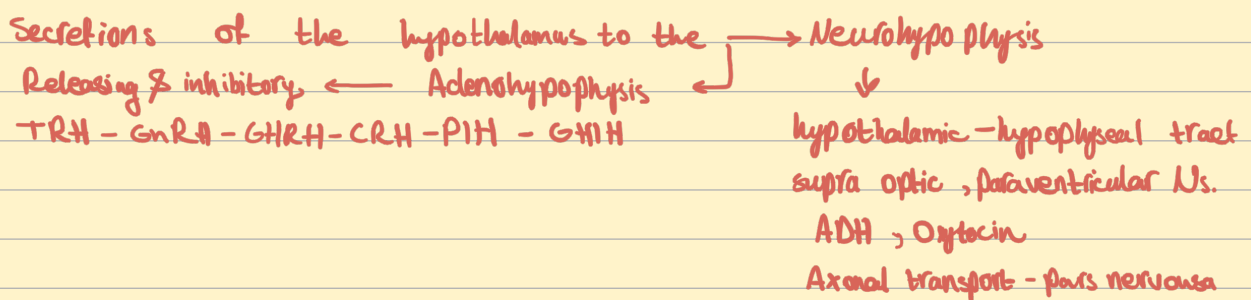 Secretions of the hypothalamus to the → Neurohypophysis
Releasing & inhibitory, ← Adenohypophysis ↓
TRH - GnRH - GHRH - CRH - PIH - GHIH
hypothalamic - hypophyseal tract
supra optic , paraventricular Ns.
ADH , Oxytocin
Axonal transport - pars nervousa